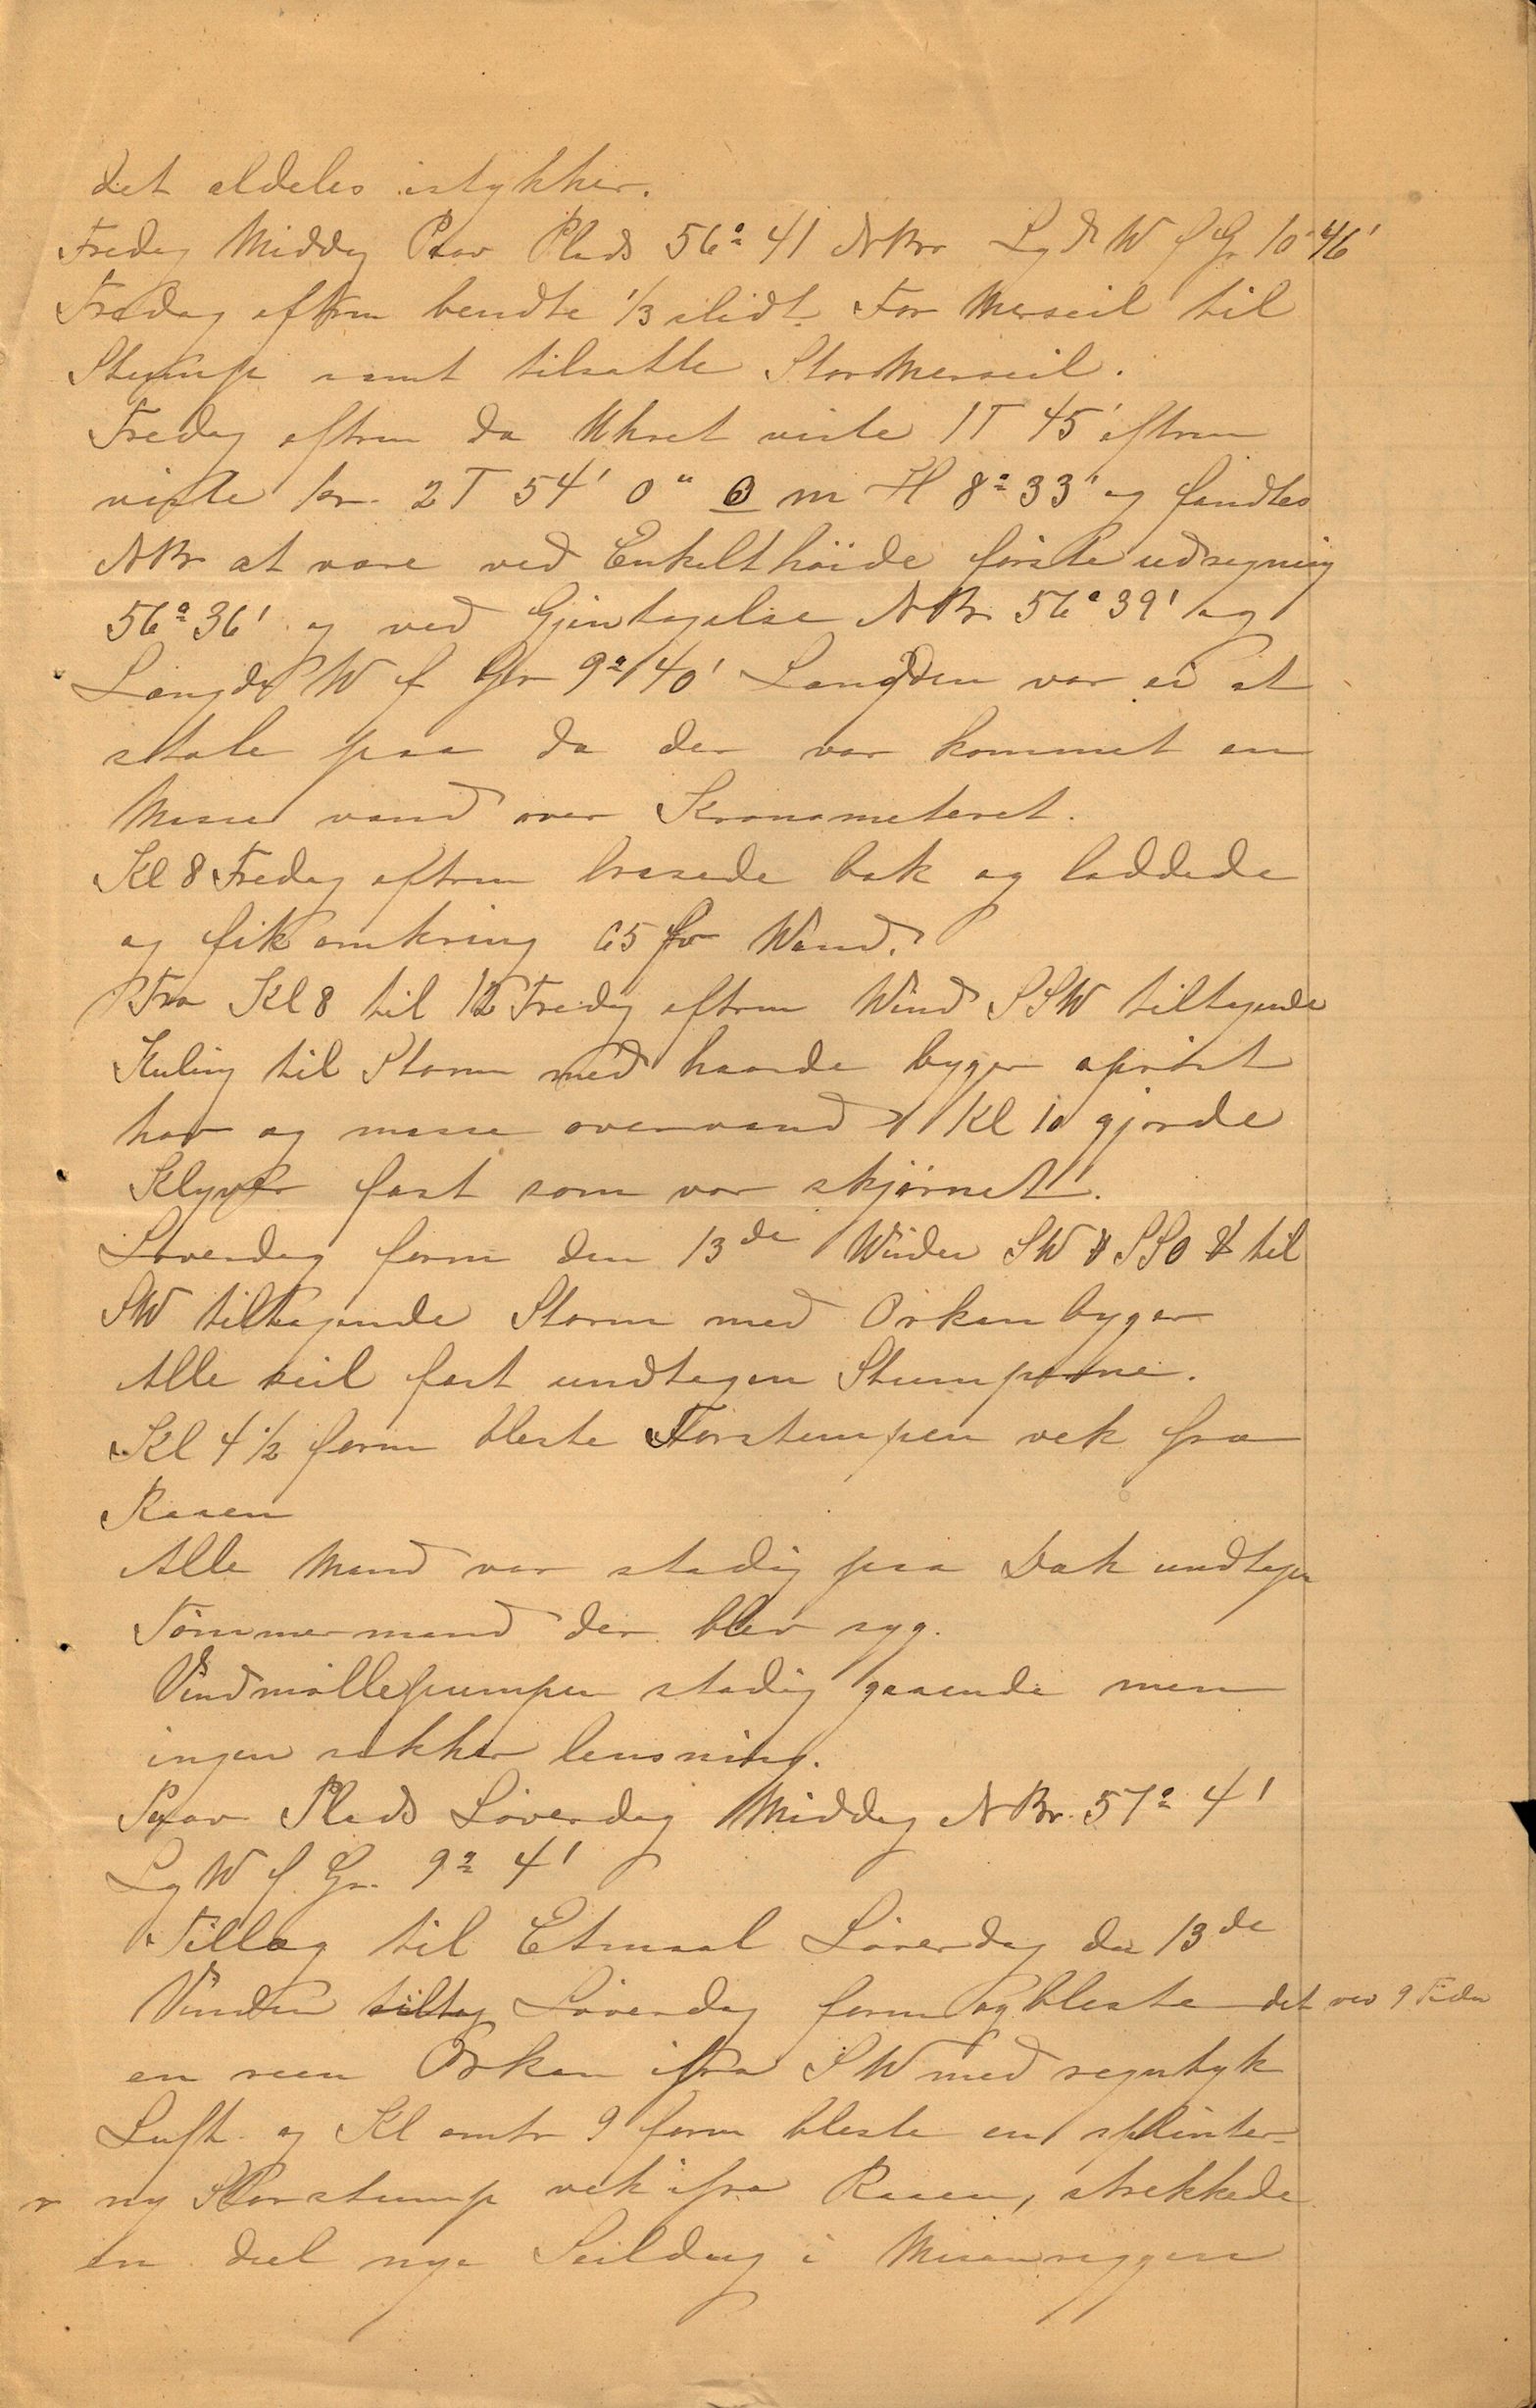 det aldeles istykker.
Fredag Middag Paav Plads 56° 41 NBr Lgd W f Gr 10° 46'
Fredag eftrm bendte 1/3 slidt For Merseil til
Stump samt tilsatte StorMerseil.
Fredag eftrm da Uhret viste 1T 45' eftrm
viste kr. 2T 54' 0" ʘ m H 8° 33' og fandtes
NBr at være ved Enkelthöide förste udregning
56° 36' og ved Gjentagelse NBr. 56° 39' og
Længde W f Gr 9° 40' Længden var ei at
stole paa da der var kommet en
Masse vand over Kronometeret.
Kl 8 Fredag eftrm brasede bak og loddede
og fik omkring 65 fv Vand.
Fra Kl 8 til 12 Fredag eftrm Vind SSW tiltagende
Kuling til Storm med haarde byger oprört
hav og masse overvand Kl 10 gjorde
Klyver fast som var skjörnet.
Löverdag form den 13de Winden SW SSO til
SW tiltagende Storm med Orkan byger
Alle seil fast undtagen Stumpene.
Kl 4 1/2 form bleste Forstumpen vek fra
Raaen
Alle Mand var stadig paa Dæk undtagen
Tömmermand der blev syg.
Vindmöllepumpen stadig gaaende men
ingen sikker lensning.
Paav Plads Löverdag Middag NBr. 57° 4'
Lg W f. Gr. 9° 4'
Tillæg til Etmaal Löverdag den 13de
Vinden tiltog Löverdag form og bleste det ved 9 Tiden
en reen Orkan ifra SW med regntyk
Luft og Kl omtr 9 form bleste en splinter-
ny Storstump vek ifra Raaen, strekkede
en deel nye Seildug i Mesanriggen